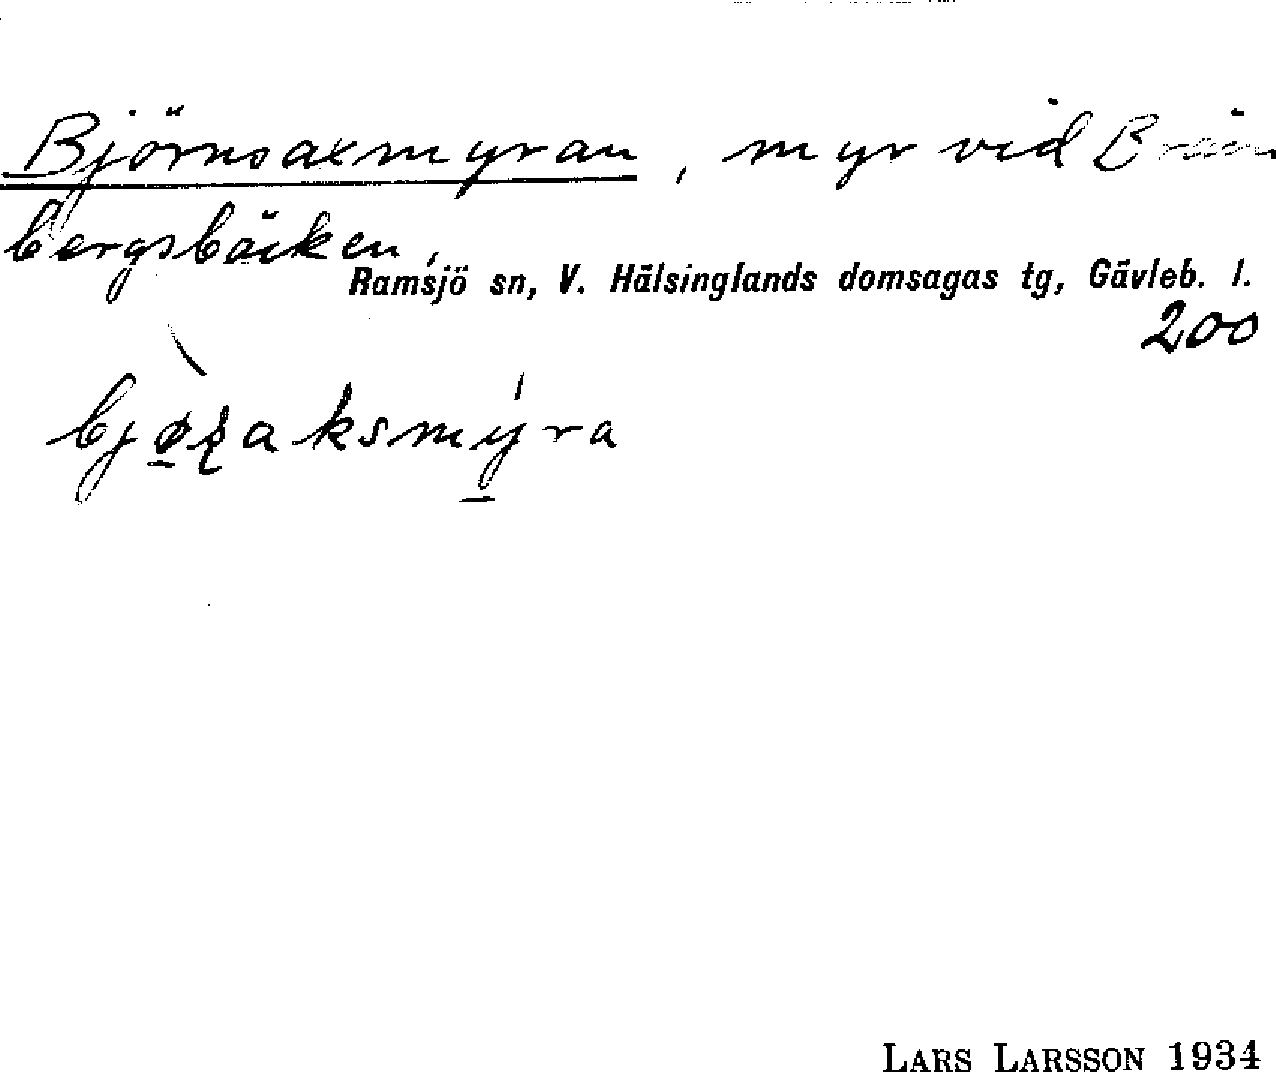 Björnsaxmyran, myr vid Brän
bergsbäcken,
Ramsjö sn, V. Hälsinglands domsagas tg, Gävleb. l.
200
LARS LARSSON 1934